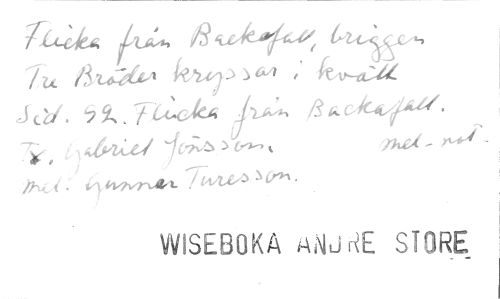 Flicka från Backafall, briggen
Tre Bröder kryssar i kväll
Sid. 92. Flicka från Backafall.
Tx. Gabriel Jönsson. mel-not.
mel. Gunnar Turesson.
WISEBOKA ANDRE STORE